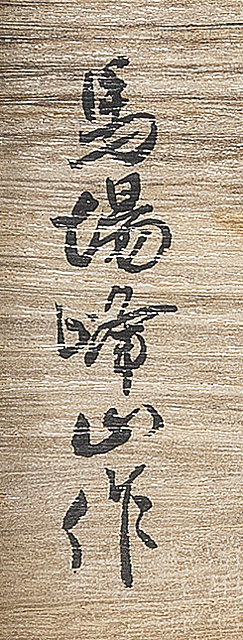 馬場峰山作